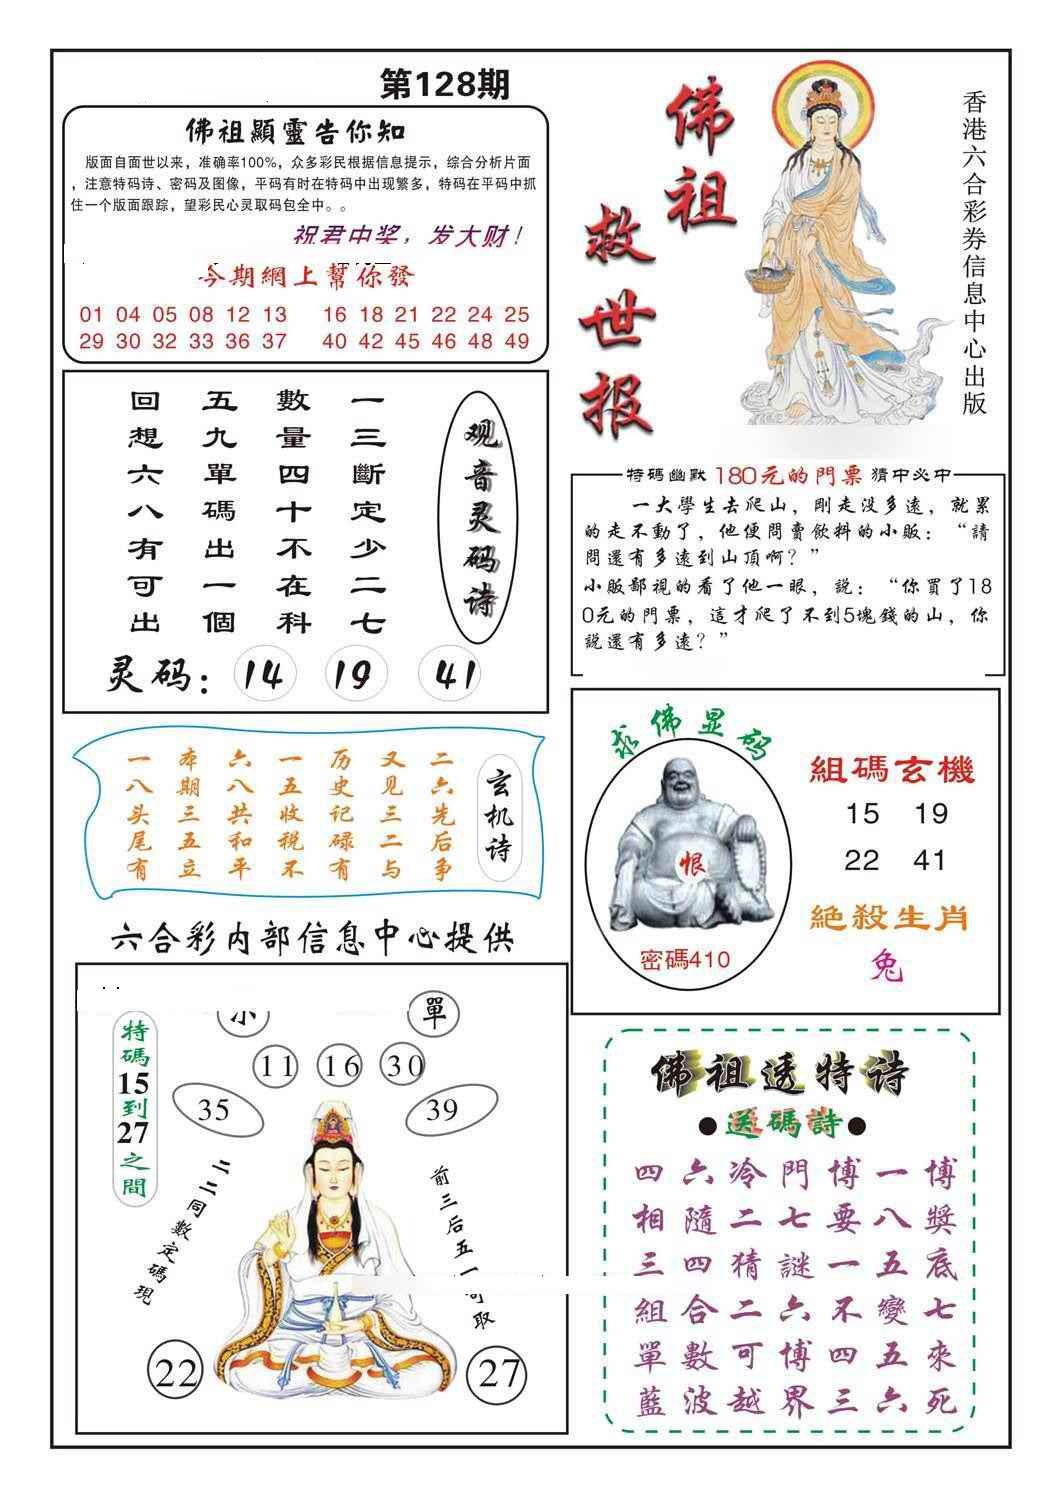 第128期
佛祖顯靈告你知
版面自面世以来，准确率100%，众多彩民根据信息提示，综合分析片面
，注意特码诗、密码及图像，平码有时在特码中出现繁多，特码在平码中抓
住一个版面跟踪，望彩民心灵取码包全中。。
祝君中奖，发大财！
今期網上幫你發
01 04 05 08 12 13 16 18 21 22 24 25
29 30 32 33 36 37 40 42 45 46 48 49
佛祖
救世报
香港六合彩券信息中心出版
观音灵码诗
一三斷定少二七
數量四十不在科
五九單碼出一個
回想六八有可出
灵码：14 19 41
特碼幽默 180元的門票 猜中必中
一大學生去爬山，剛走没多遠，就累
的走不動了，他便問賣飲料的小販：“請
問還有多遠到山頂啊？”
小販鄙視的看了他一眼，説：“你買了18
0元的門票，這才爬了不到5塊錢的山，你
説還有多遠？”
玄机诗
二六先后争
又见三二与
历史记碌有
一五收税不
六八共和平
本期三五立
一八头尾有
求佛显码
恨
密碼410
組碼玄機
15 19
22 41
絕殺生肖
兔
六合彩内部信息中心提供
小
單
特碼15到27之間
11 16 30
35
39
二二同數定碼現
前三后五一
取
22
27
佛祖透特诗
●送碼詩●
四六冷門博一博
相隨二七要八獎
三四猜謎一五底
組合二六不變七
單數可博四五來
藍波越界三六死